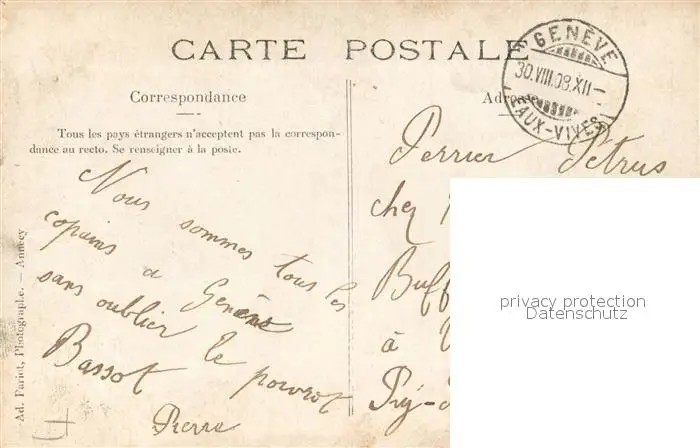 CARTE POSTALE
GENÈVE
30.VIII.08.XII-
EAUX-VIVES
Correspondance
Adresse
Tous les pays étrangers n'acceptent pas la correspon-
dance au recto. Se renseigner à la poste.
Nous sommes tous les
copains a Genève
sans oublier le
Bassot
Pierre
Perrier Pétrus
chez
Buff
à
Puy-
Ad. Pariet, Photographe. — Annecy
privacy protection
Datenschutz